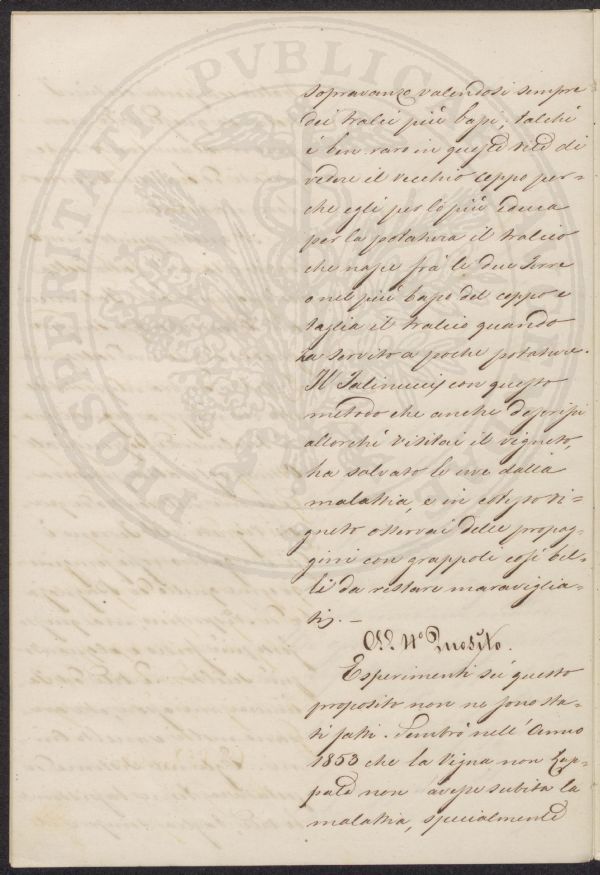 sopravanza valendosi sempre
dei tralci più bassi, talchè
è ben raro in questa vita di
vedere il vecchio ceppo per-
che egli per lo più educa
per la potatura il tralcio
che nasce frà le due terre
o nel più basso del ceppo e
taglia il tralcio quando
ha servito a poche potature.
Il con questo
metodo che anche descrissi
allorchè visitai il vigneto,
ha salvato le uve dalla
malattia, e in cotesto vi-
gneto osservai delle propag-
gini con grappoli così bel-
li da restare maraviglia-
ti. —
Al 4° Quesito.
Esperimenti su questo
proposito non ne sono sta-
ti fatti. Sembrò nell'Anno
1853 che la vigna non zap-
pata non avesse subita la
malattia, specialmente